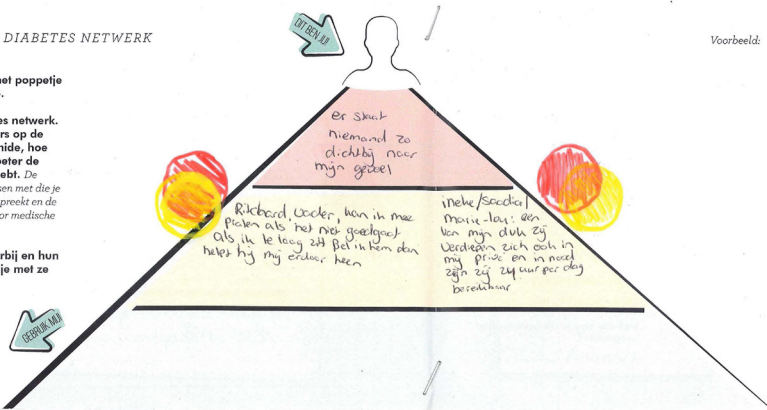 DIABETES NETWERK
DIT BEN JIJ!
Voorbeeld:
het poppetje
es netwerk.
rs op de
mide, hoe
beter de
ebt. De
sen met die je
spreekt en de
or medische
rbij en hun
je met ze
GEBRUIK MIJ!
er staat
niemand zo
dichtbij naar
mijn gevoel
Richard, vader, kan ik mee
praten als het niet goed gaat
als ik te laag zit bel ik hem dan
helpt hij mij erdoor heen
ineke/Saadia/
marie-lou: een
van mijn dvk zij
verdiepen zich ook in
mij privé en in nood
zijn zij 24 uur per dag
bereikbaar